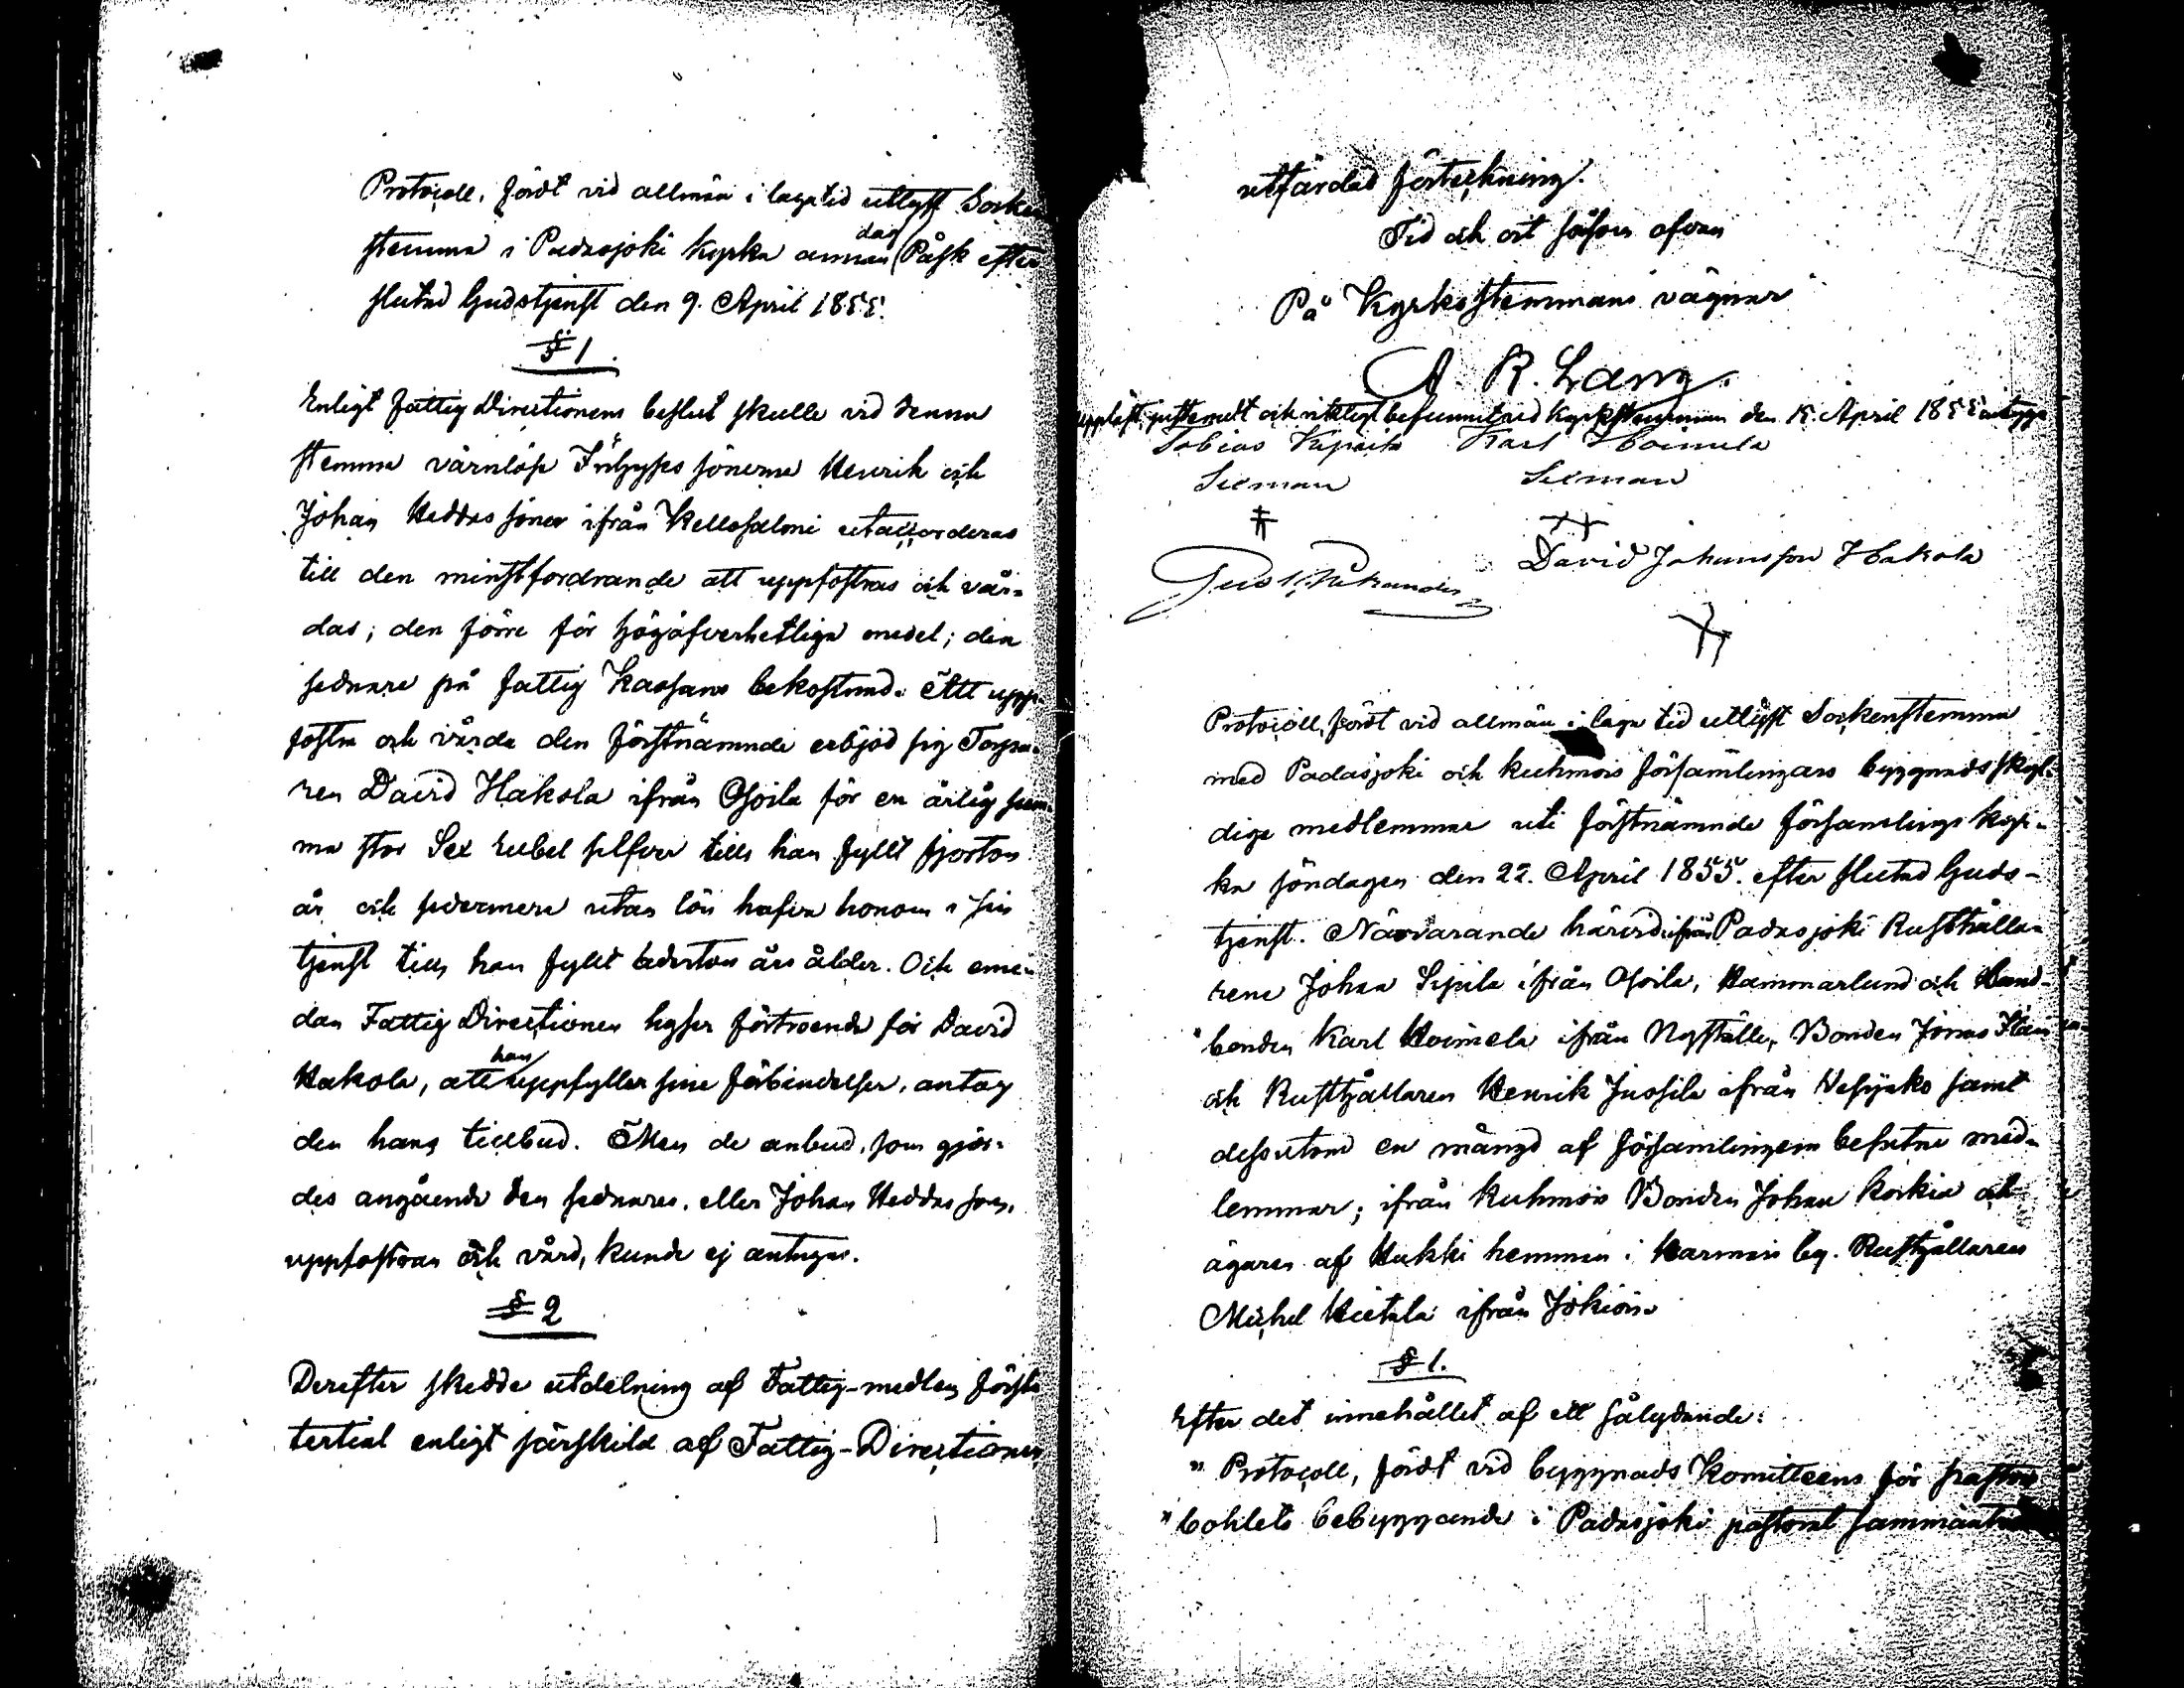 Protocoll, fördt vid allmän i laga tid utlyst Socken
stemma i Padasjoki kyrka annan dag Påsk efter
slutad Gudstjenst den 9. April 1855.
§ 1.
Enligt Fattig Directionens beslut skulle vid denna
stemma värnlöse sönerne Henrik och
Johan Heddas söner ifrån Kellosalmi utaccorderas
till den minstfordrande att uppfostras och vår-
das; den förre för högöfverhetliga medel; den
sednare på fattig Kassans bekostnad. Att upp-
fostra och vårda den förstnämnde erbjöd sig Torpa-
ren David Hakola ifrån Osoila för en årlig sum-
ma stor Sex rubel silfver tills han fyllt fjorton
år och sedermera utan lön hafva honom i sin
tjenst tills han fyllt aderton års ålder. Och eme-
dan Fattig Directionen hyser förtroende för David
Hakola, att han uppfyller sine förbindelser, antog
den hans tillbud. Men de anbud, som gjor-
des angående den sednares, eller Johan Heddas sons,
uppfostran och vård, kunde ej antagas.
§ 2
Derefter skedde utdelning af Fattig-medlen första
tertial enligt särskild af Fattig-Directionen
utfärdad förteckning.
Tid och ort såsom ofvan
På Kyrkostemmans vägnar
A. R. Lang.
uppläst, justeradt och riktigt befunnit vid kyrkstemman den 15 April 1855 intyga
Tobias Karl Hoimela
Sexman Sexman
David Johansson Hakola
Protocoll, fördt vid allmän i laga tid utlyst Sockenstemma
med Padasjoki och Kuhmois församlingars byggnadsskyl-
dige medlemmar uti förstnämnde församlings kyr-
ka söndagen den 22. April 1855. efter slutad Guds-
tjenst. Närvarande härvid ifrån Padasjoki Rusthålla-
rene Johan Sipila ifrån Osoila, Hammarlund och Land-
bonden Karl Hoimela ifrån Nyystälä, Bonden Jonas
och Rusthållaren Henrik Jussila ifrån Vesijako samt
dessutom en mängd af församlingens besutne med-
lemmar; ifrån Kuhmois Bonden Johan Korkia och
ägaren af Hukki hemman i Harmois by. Rusthållaren
Michel Hietala ifrån Jokiois.
§ 1.
Efter det innehållet af ett sålydande:
" Protocoll, fördt vid byggnads Komitteens för pastors
" bohlets bebyggande i Padasjoki pastorat